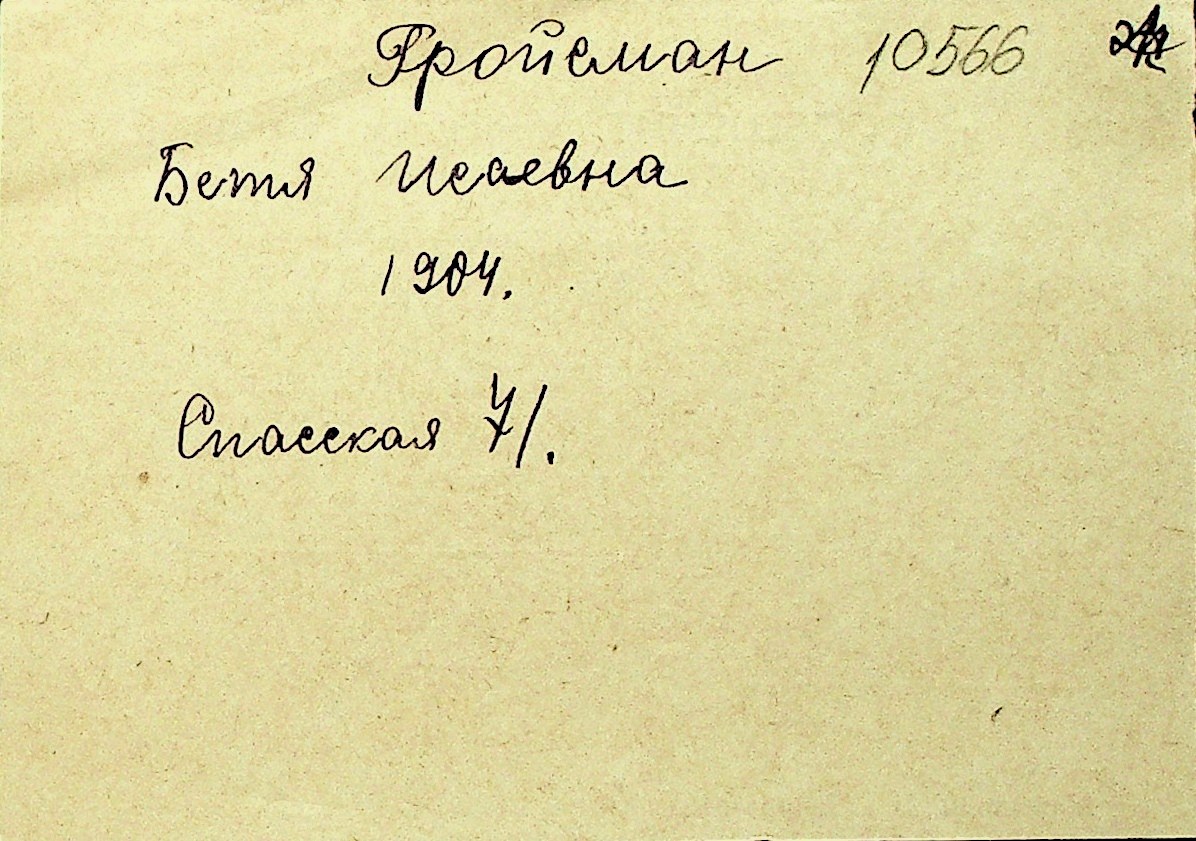 Гройсман 10566
Бетя Исаевна
1904.
Спасская 7/.